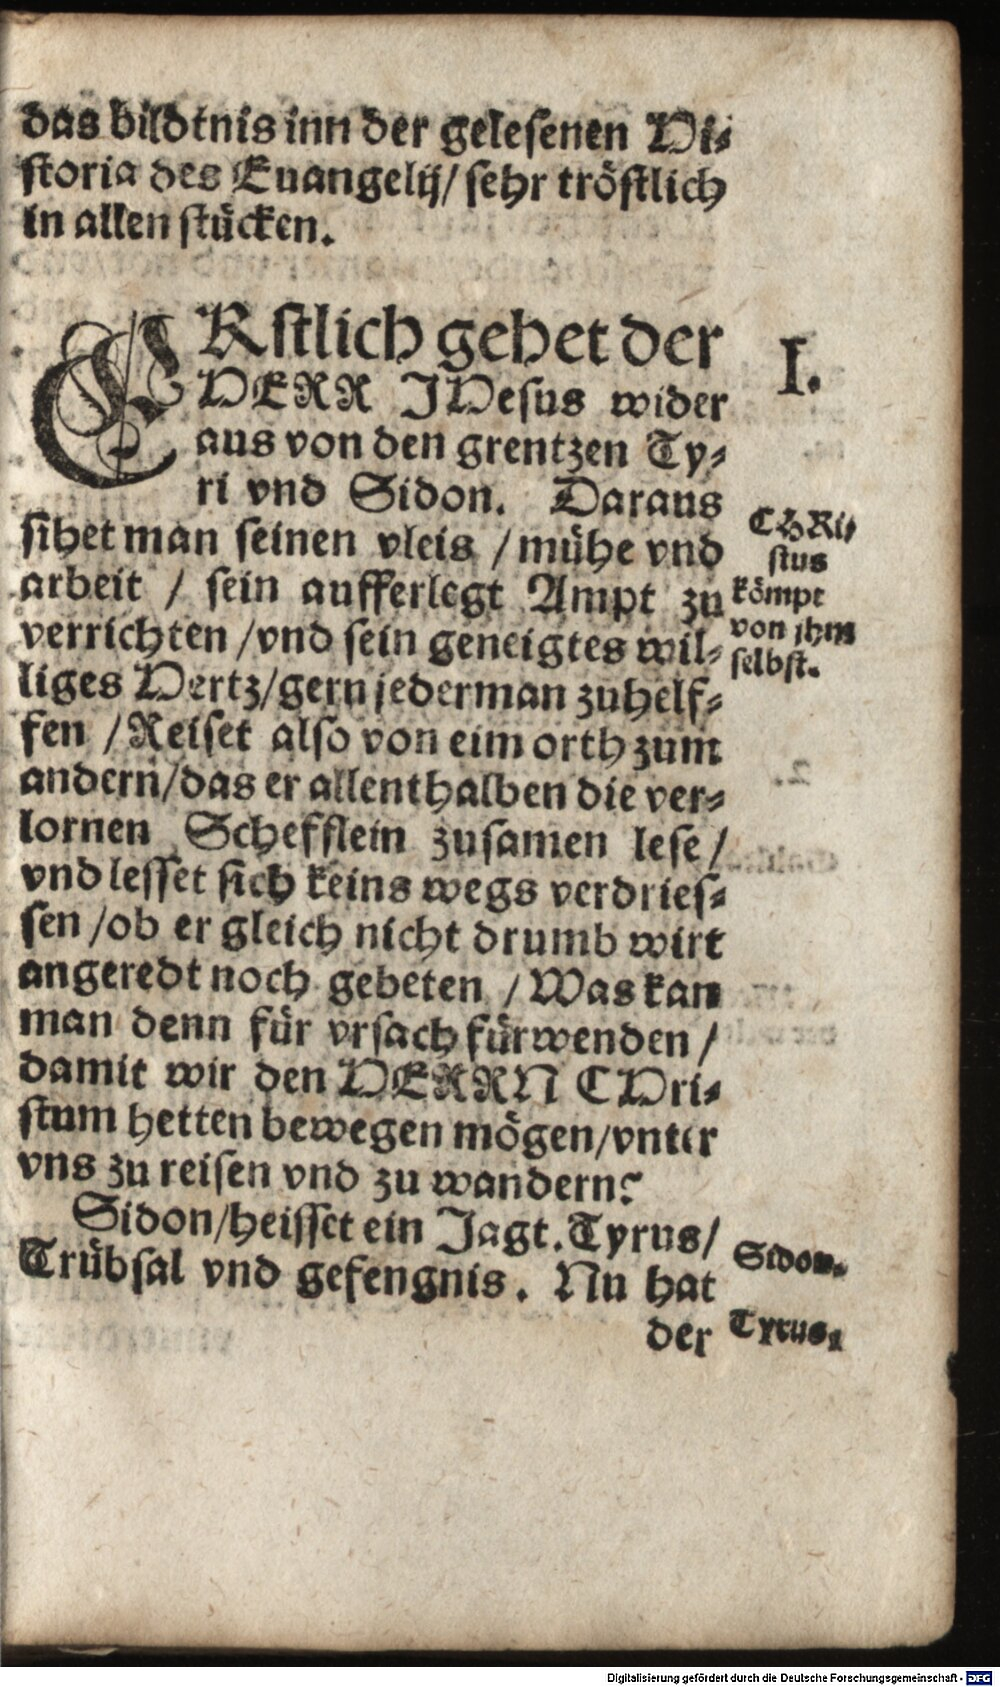 das bildtnis inn der gelesenen Hi-
storia des Euangelij / sehr tröstlich
in allen stücken.
ERstlich gehet der
HERR JHesus wider
aus von den grentzen Ty-
ri vnd Sidon. Daraus
sihet man seinen vleis / mühe vnd
arbeit / sein aufferlegt Ampt zu
verrichten / vnd sein geneigtes wil-
liges Hertz / gern jederman zuhelf-
fen / Reiset also von eim orth zum
andern / das er allenthalben die ver-
lornen Schefflein zusamen lese /
vnd lesset sich keins wegs verdries-
sen / ob er gleich nicht drumb wirt
angeredt noch gebeten / Was kan
man denn für vrsach fürwenden /
damit wir den HERRN CHri-
stum hetten bewegen mögen / vnter
vns zu reisen vnd zu wandern?
Sidon / heisset ein Jagt. Tyrus /
Trübsal vnd gefengnis. Nu hat
der
I.
CHRi-
stus
kömpt
von jhm
selbst.
Sidon.
Tyrus.
Digitalisierung gefördert durch die Deutsche Forschungsgemeinschaft - DFG